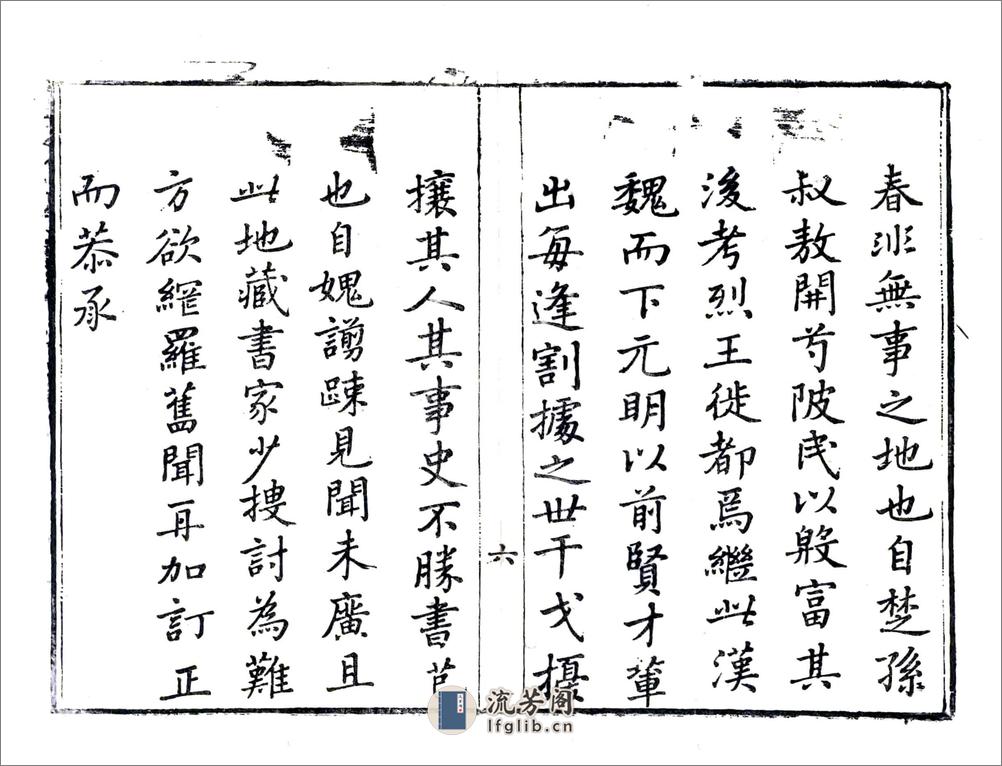 春非無事之地也自楚孫
叔敖開芍陂民以殷富其
後考烈王徙都焉繼此漢
魏而下元明以前賢才輩
出每逢割據之世干戈擾
六
攘其人其事史不勝書
也自媿謭疎見聞未廣且
此地藏書家少搜討為難
方欲網羅舊聞再加訂正
而恭承
流芳阁
lfglib.cn